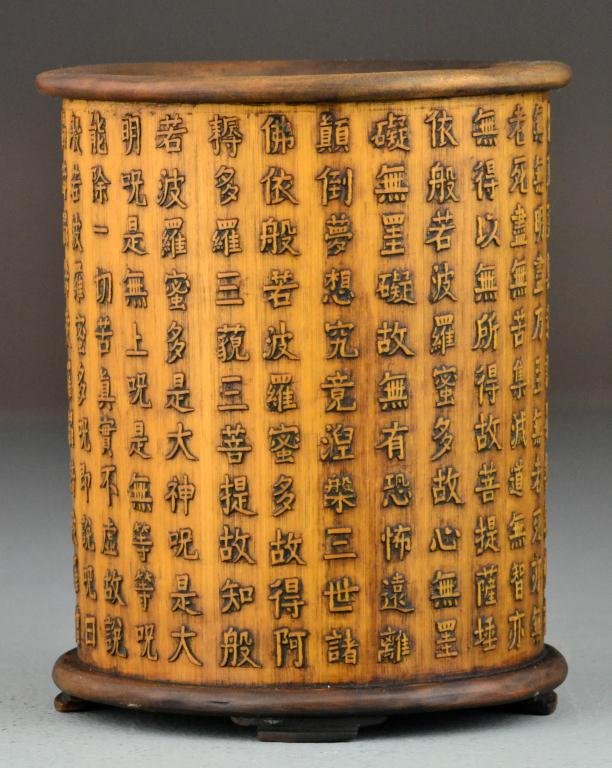 無無明盡乃至無老死亦無
老死盡無苦集滅道無智亦
無得以無所得故菩提薩埵
依般若波羅蜜多故心無罣
礙無罣礙故無有恐怖遠離
顛倒夢想究竟涅槃三世諸
佛依般若波羅蜜多故得阿
耨多羅三藐三菩提故知般
若波羅蜜多是大神呪是大
明呪是無上呪是無等等呪
能除一切苦真實不虛故說
般若波羅蜜多呪即說呪曰